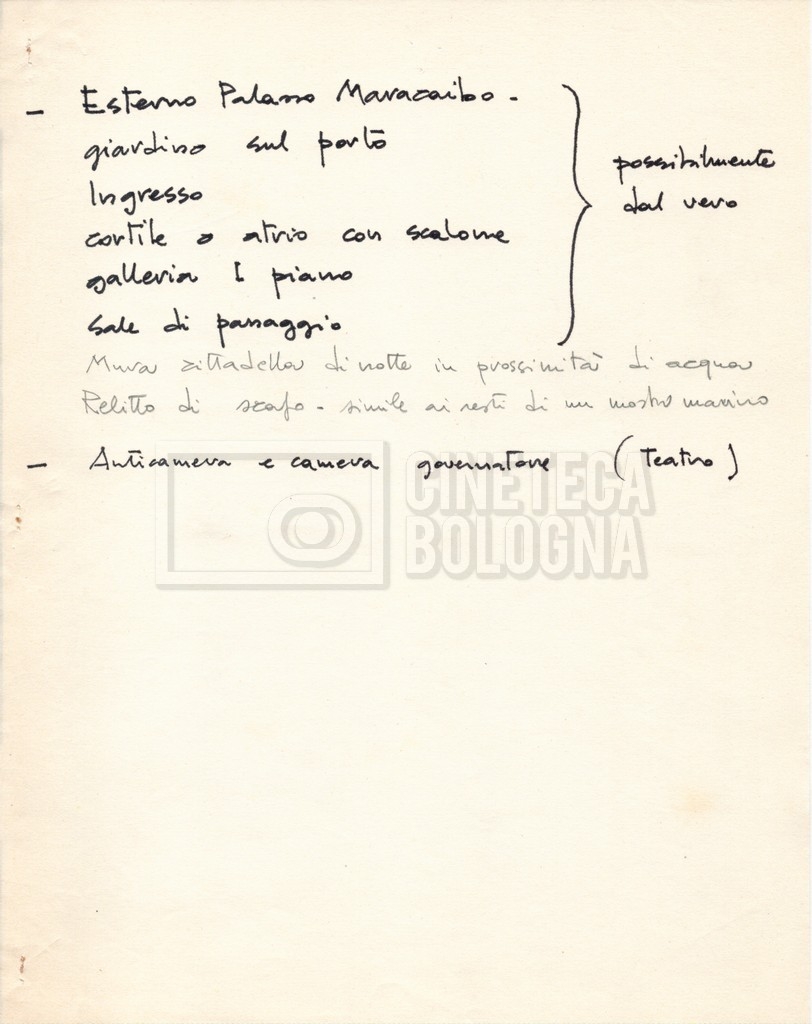 - Esterno Palazzo Maracaibo -
giardino sul porto
Ingresso
cortile o atrio con scalone
galleria I piano
sale di passaggio
possibilmente
dal vero
Mura cittadella di notte in prossimità di acqua
Relitto di scafo - simile ai resti di un mostro marino
- Anticamera e camera governatore (Teatro)
CINETECA
BOLOGNA